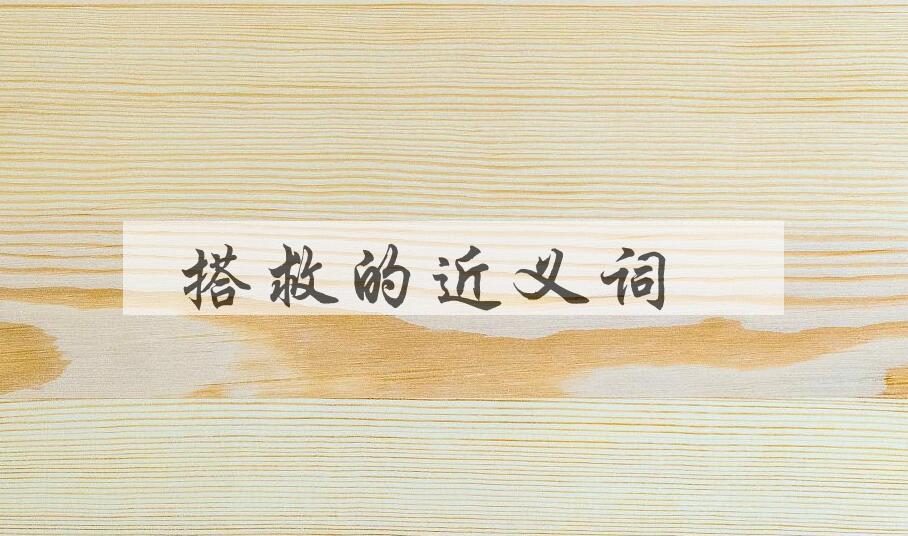 搭救的近义词